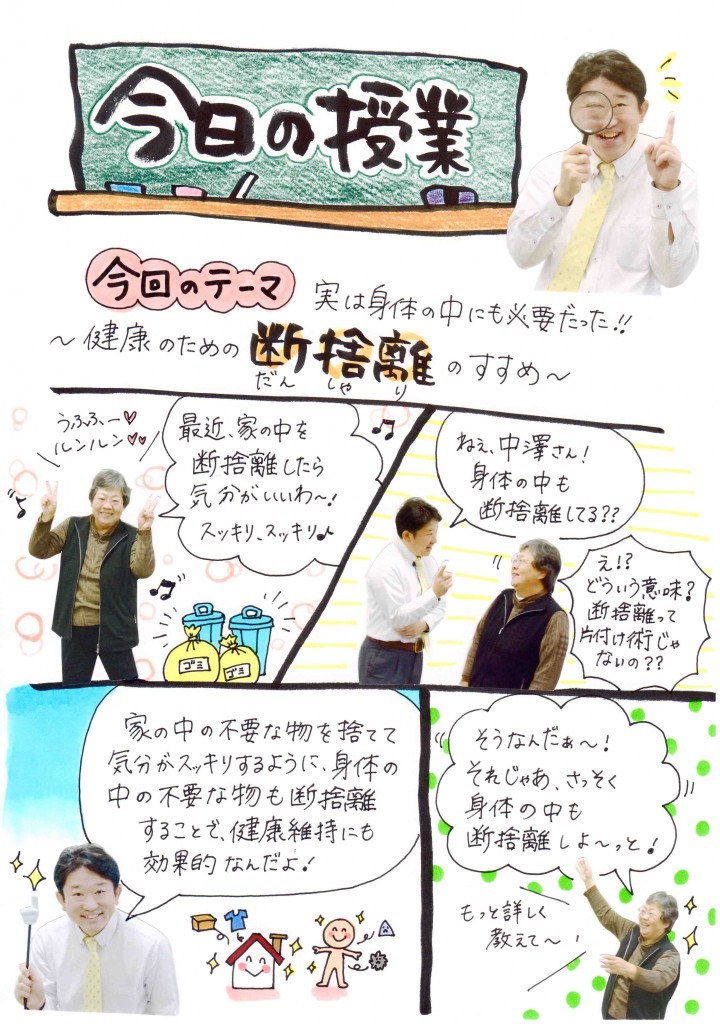 今日の授業
今回のテーマ
実は身体の中にも必要だった!!
～健康のための断捨離のすすめ～
だんしゃり
うふふ、ー♥
ルンルン♥♥
最近、家の中を
断捨離したら
気分がいいわ～!
スッキリ、スッキリ♪
ゴミ
ゴミ
ねぇ、中澤さん!
身体の中も
断捨離してる??
え!?
どういう意味?
断捨離って
片付け術じゃ
ないの??
家の中の不要な物を捨てて
気分がスッキリするように、身体の
中の不要な物も断捨離
することで、健康維持にも
効果的なんだよ!
そうなんだぁ～!
それじゃあ、さっそく
身体の中も
断捨離しよ～っと!
もっと詳しく
教えて～